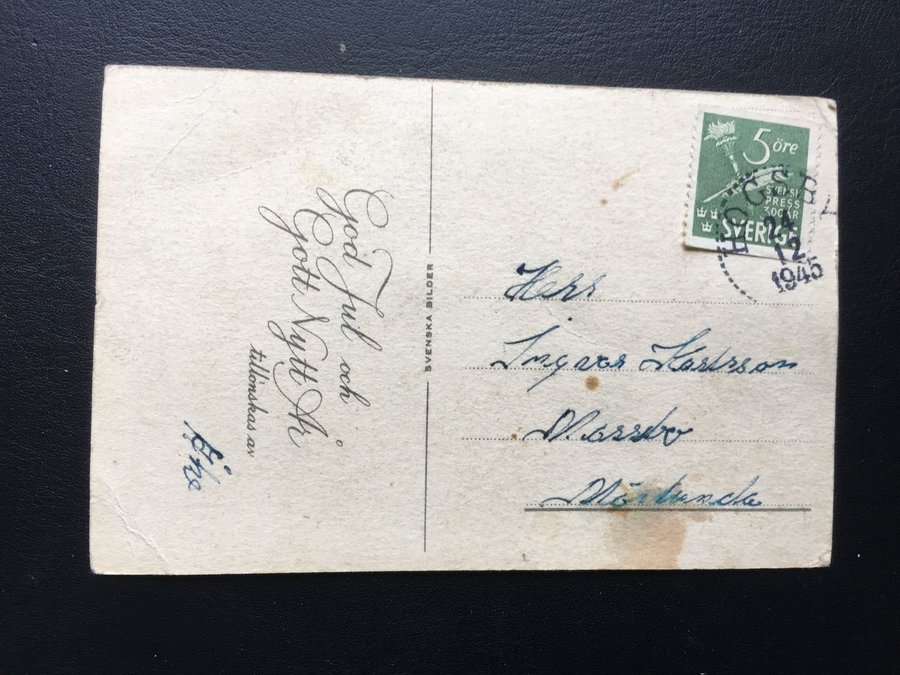 God Jul och
Gott Nytt År
tillönskas av
Åke
SVENSKA BILDER
5 öre
SVENSK
PRESS
300 ÅR
SVERIGE
HÖGSBY
24
12
1945
Herr
Ingvar Karlsson
Mörlunda